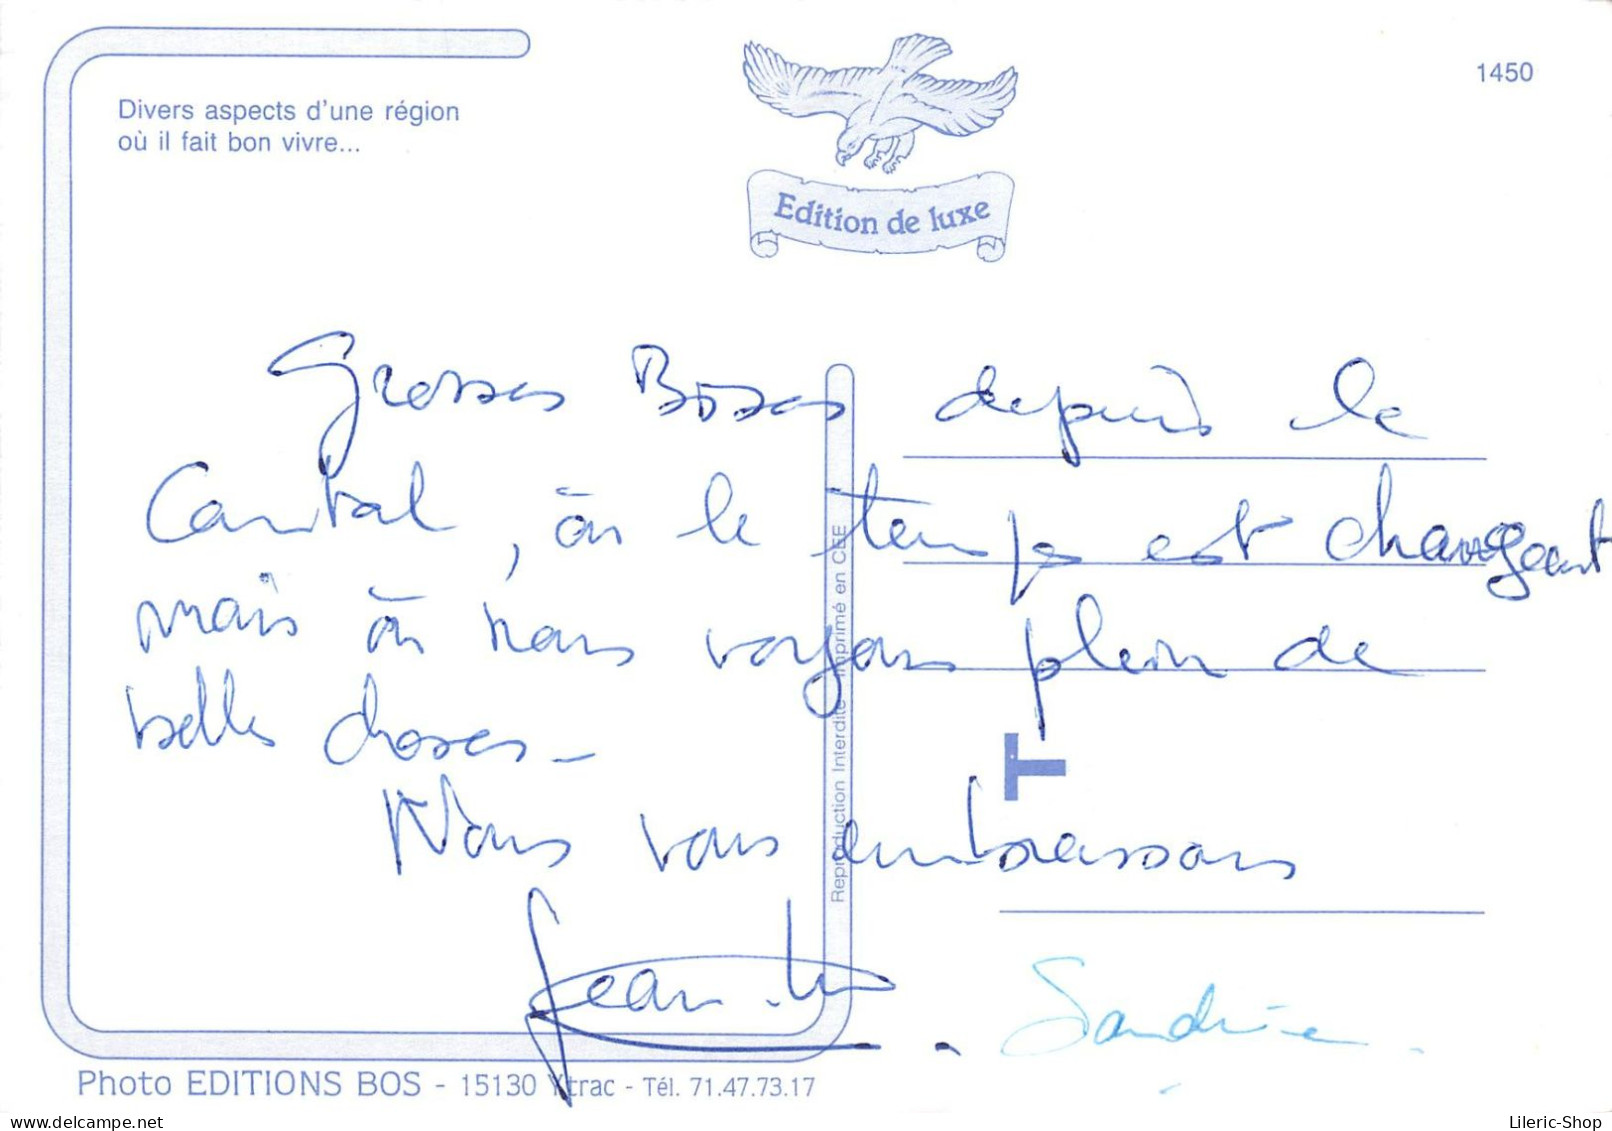 1450
Divers aspects d'une région
où il fait bon vivre...
Edition de luxe
Grosses Bises depuis le
Cantal, où le temps est changeant
mais où nous voyons plein de
belles choses -
Nous vous embrassons
Jean-
Sandrine
Reproduction Interdite Imprimé en CEE
T
Photo EDITIONS BOS - 15130 Ytrac - Tél. 71.47.73.17
Lileric-Shop